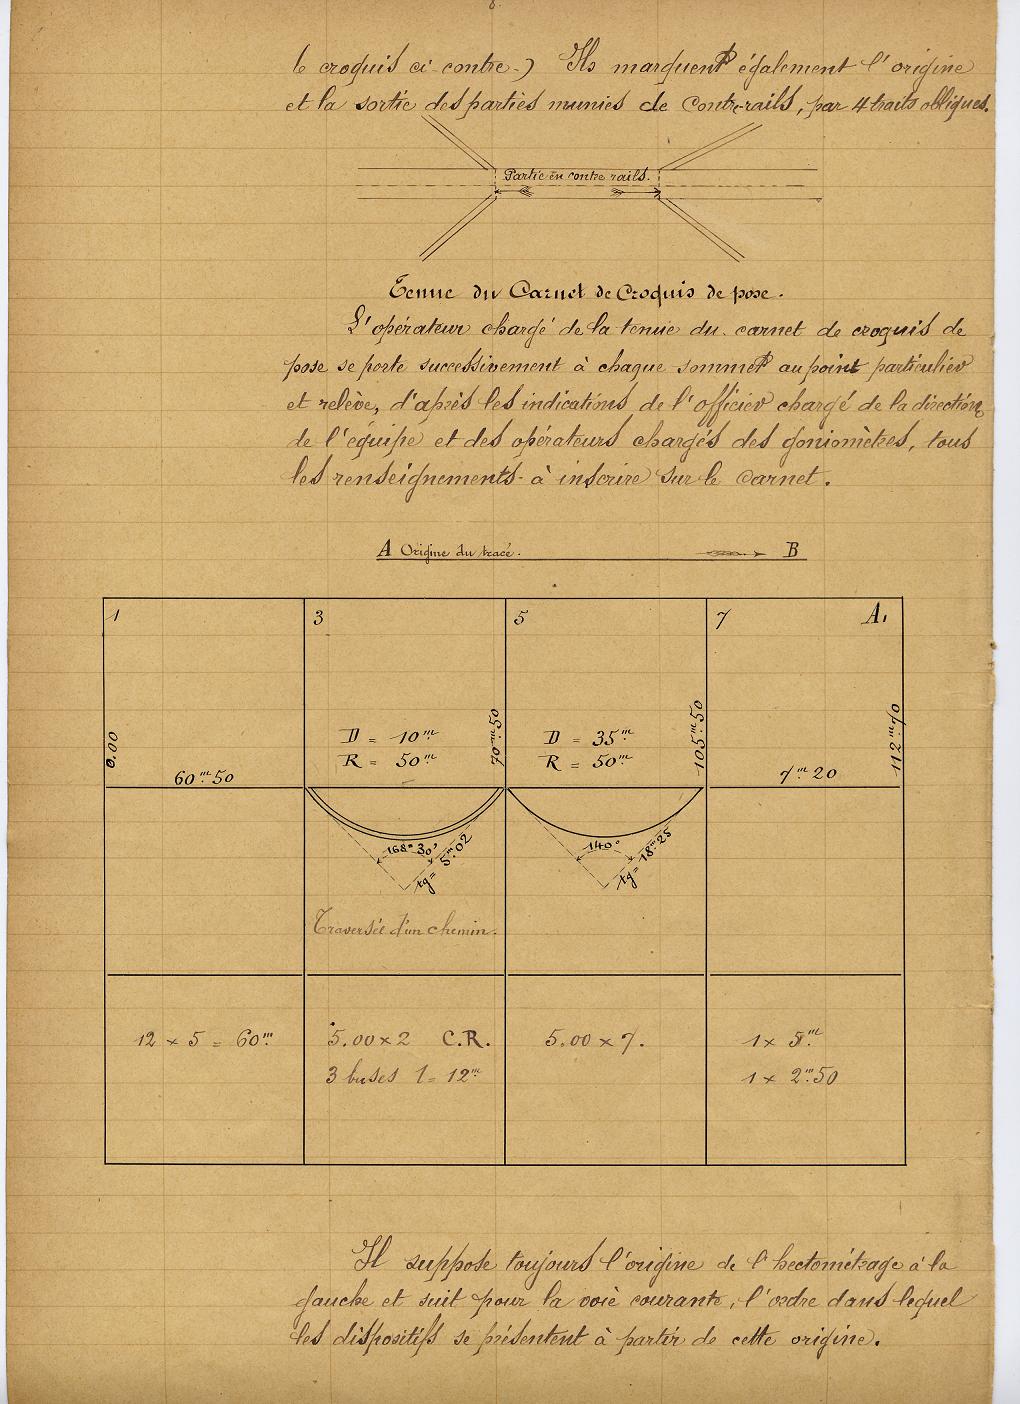 8.
le croquis ci-contre-) Ils marquent également l'origine
et la sortie des parties munies de contre-rails, par 4 traits obliques.
Partie en contre rails.
Tenue du Carnet de Croquis de pose.
L'opérateur chargé de la tenue du carnet de croquis de
pose se porte successivement à chaque sommet au point particulier
et relève, d'après les indications de l'officier chargé de la direction
de l'équipe et des opérateurs chargés des goniomètres, tous
les renseignements à inscrire sur le carnet.
A Origine du tracé. B
1 3 5 7 A.
0.00
60m50
D = 10m
R = 50m
70m50
D = 35m
R = 50m
105m50
7m20
112m70
168°30'
tg = 5m02
140°
tg = 18m25
Traversée d'un chemin.
12 x 5 = 60m
5.00 x 2 C.R.
3 buses l = 12m
5.00 x 7.
1 x 5m
1 x 2m50
Il suppose toujours l'origine de l'hectométrage à la
gauche et suit pour la voie courante, l'ordre dans lequel
les dispositifs se présentent à partir de cette origine.